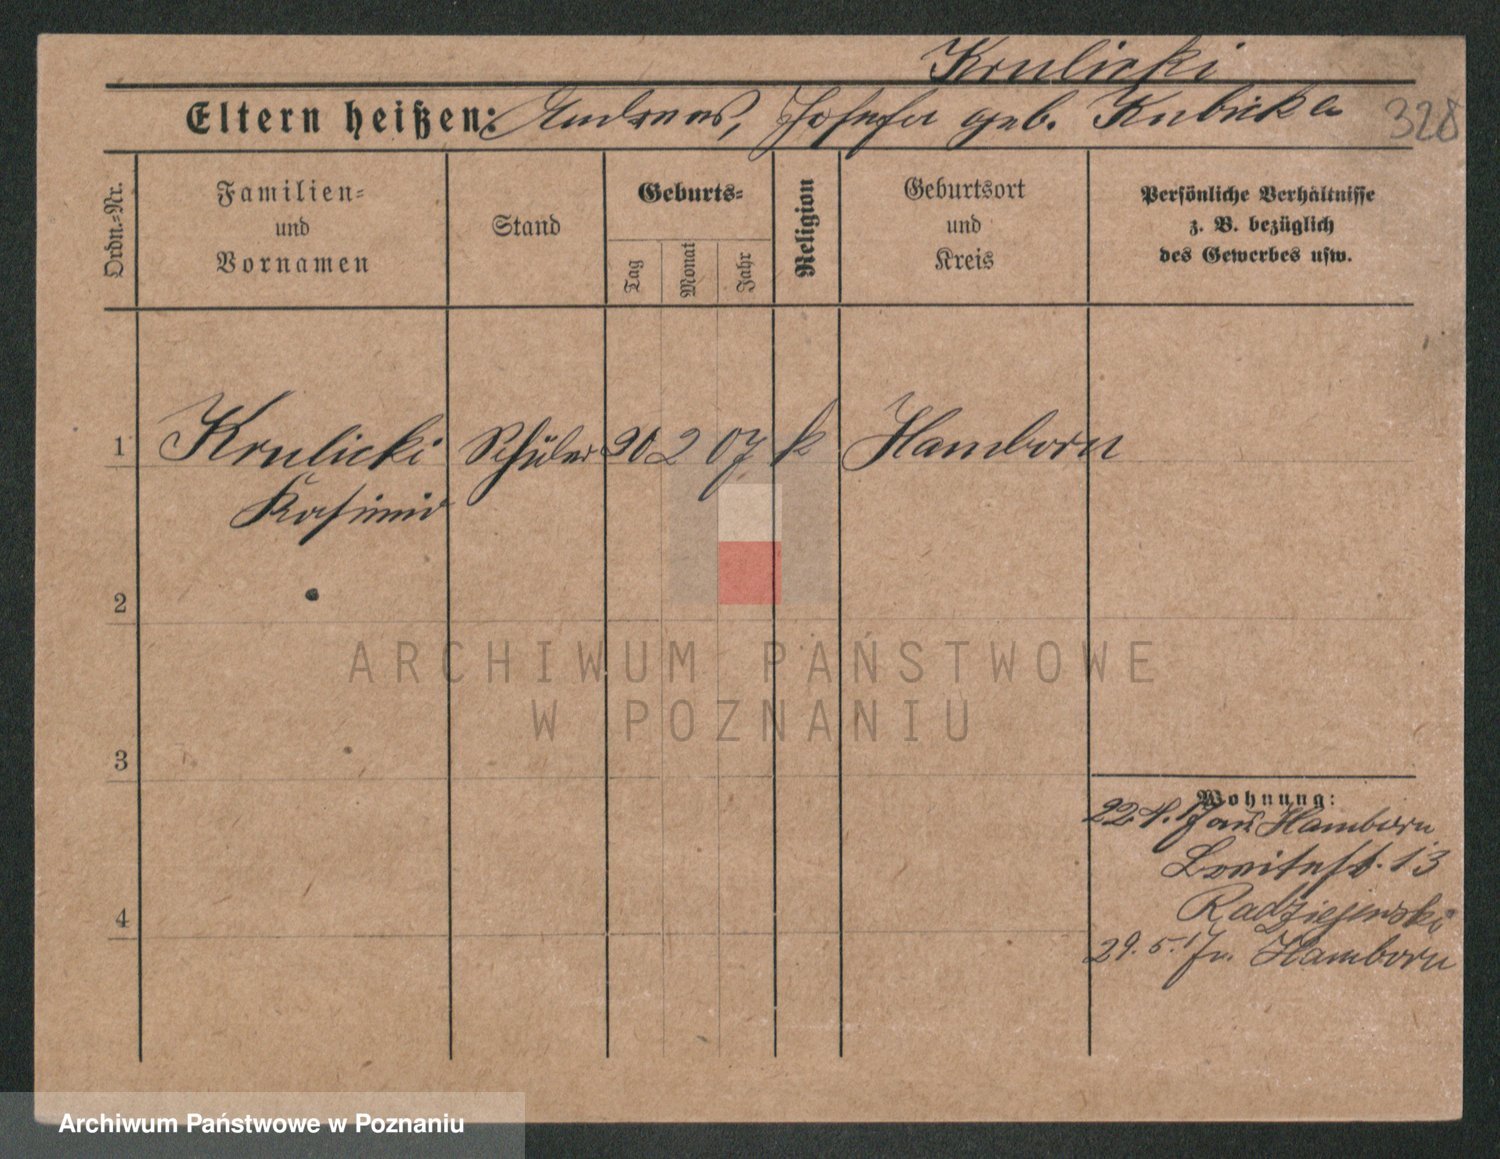 Krulicki
Eltern heißen: Andreas, Josefa geb. Kubicka
328
Ordn.-Nr.
Familien-
und
Vornamen
Stand
Geburts-
Tag
Monat
Jahr
Religion
Geburtsort
und
Kreis
Persönliche Verhältnisse
z. B. bezüglich
des Gewerbes usw.
1 Krulicki Schüler 20 2 07 k Hamborn
Kasimir
2
ARCHIWUM PAŃSTWOWE
W POZNANIU
3
Wohnung:
22.4.17 aus Hamborn
Breitestr. 13
Radziejewski
4
29.5.17 n. Hamborn
Archiwum Państwowe w Poznaniu